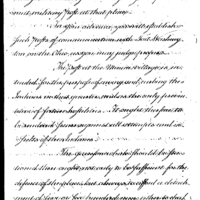 and military Post at that place.
In after advance, you will establish
such Posts of communication with Fort Washing-
ton on the Ohio as you may judge proper.
The Post at the Miami village is in-
tended for the purpose of awing and curbing the
Indians in that quarter, and as the only preven-
tative of future hostilities. It ought therefore to
be rendered secure against all attempts and in-
sults of the Indians.
The garrison which should be stationed
there ought not only to be sufficient for the
defence of the place, but always to afford a detach-
ment of five or six hundred men either to chastise